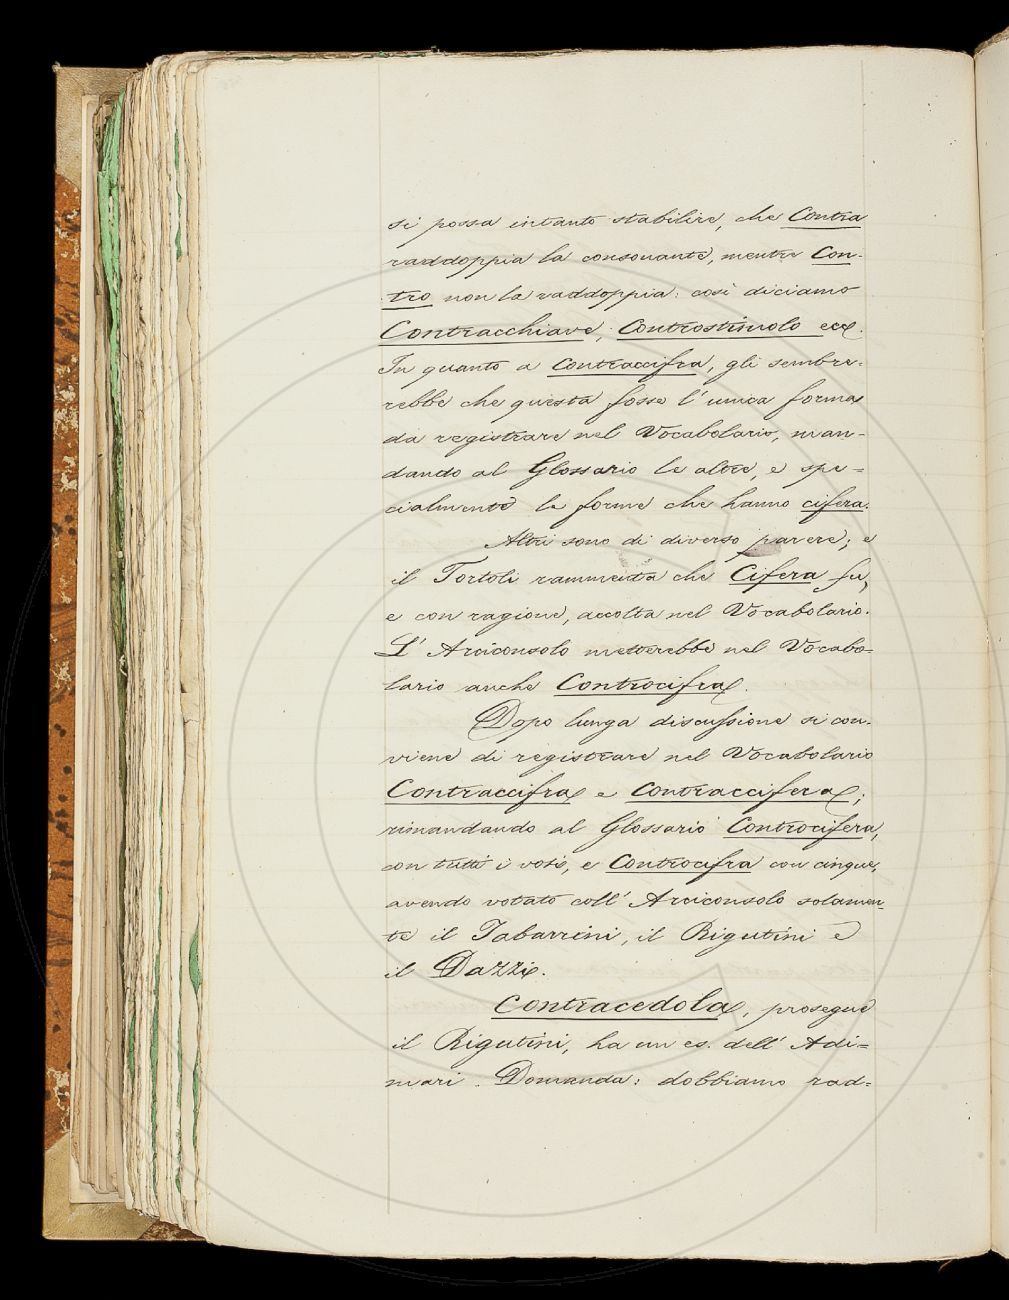 si possa intanto stabilire, che Contra
raddoppia la consonante, mentre Con-
tro non la raddoppia: così diciamo
Contracchiave, Controstimolo ecc.
In quanto a Contraccifra, gli sembre-
rebbe che questa fosse l'unica forma
da registrare nel Vocabolario, man-
dando al Glossario le altre, e spe-
cialmente le forme che hanno cifera.
Altri sono di diverso parere; e
il Tortoli rammenta che Cifera fu,
e con ragione, accolta nel Vocabolario.
L'Arciconsolo metterebbe nel Vocabo-
lario anche Controcifra.
Dopo lunga discussione si con-
viene di registrare nel Vocabolario
Contraccifra e Contraccifera;
rimandando al Glossario Controcifera,
con tutti i voti, e Controcifra con cinque,
avendo votato coll'Arciconsolo solamen-
te il Tabarrini, il Rigutini e
il Dazzi.
Contracedola, prosegue
il Rigutini, ha un es. dell'Adi-
mari. Domanda: dobbiamo rad-